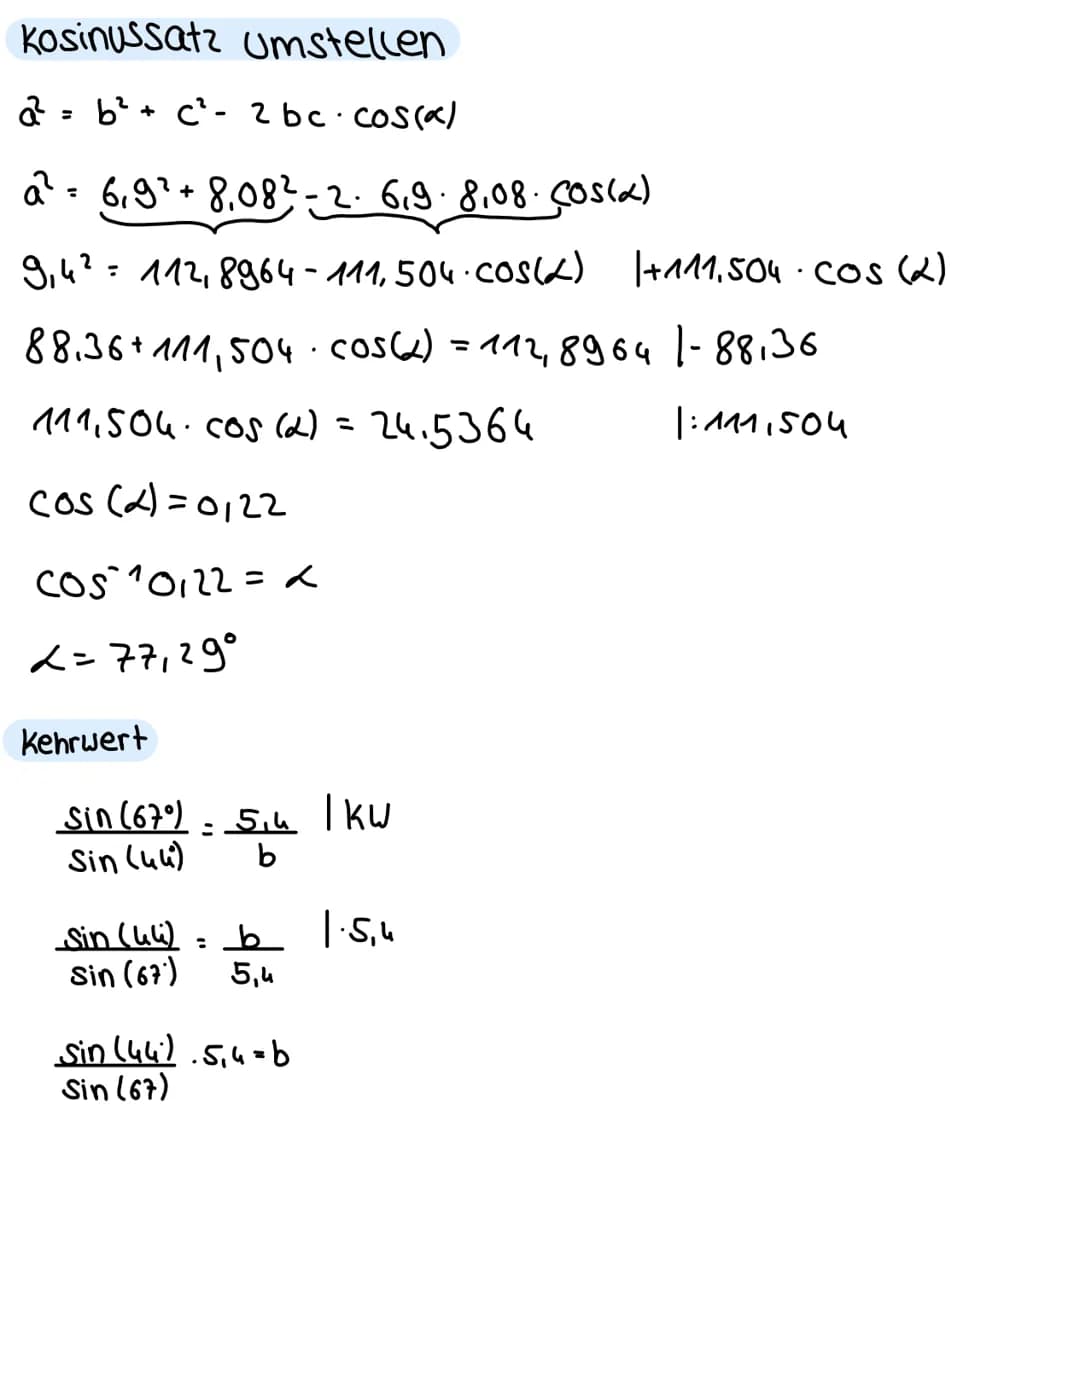 Kosinussatz umstellen
a² = b² + c² - 2bc · cos(α)
a² = 6,9² + 8,08² - 2 · 6,9 · 8,08 · cos(α)
9,4² = 112,8964 - 111,504 · cos(α) |+111,504 · cos(α)
88,36 + 111,504 · cos(α) = 112,8964 |- 88,36
111,504 · cos(α) = 24,5364 |: 111,504
cos(α) = 0,22
cos⁻¹ 0,22 = α
α = 77,29°
Kehrwert
sin(67°)/sin(44°) = 5,4/b | KW
sin(44°)/sin(67°) = b/5,4 | · 5,4
sin(44°)/sin(67) · 5,4 = b